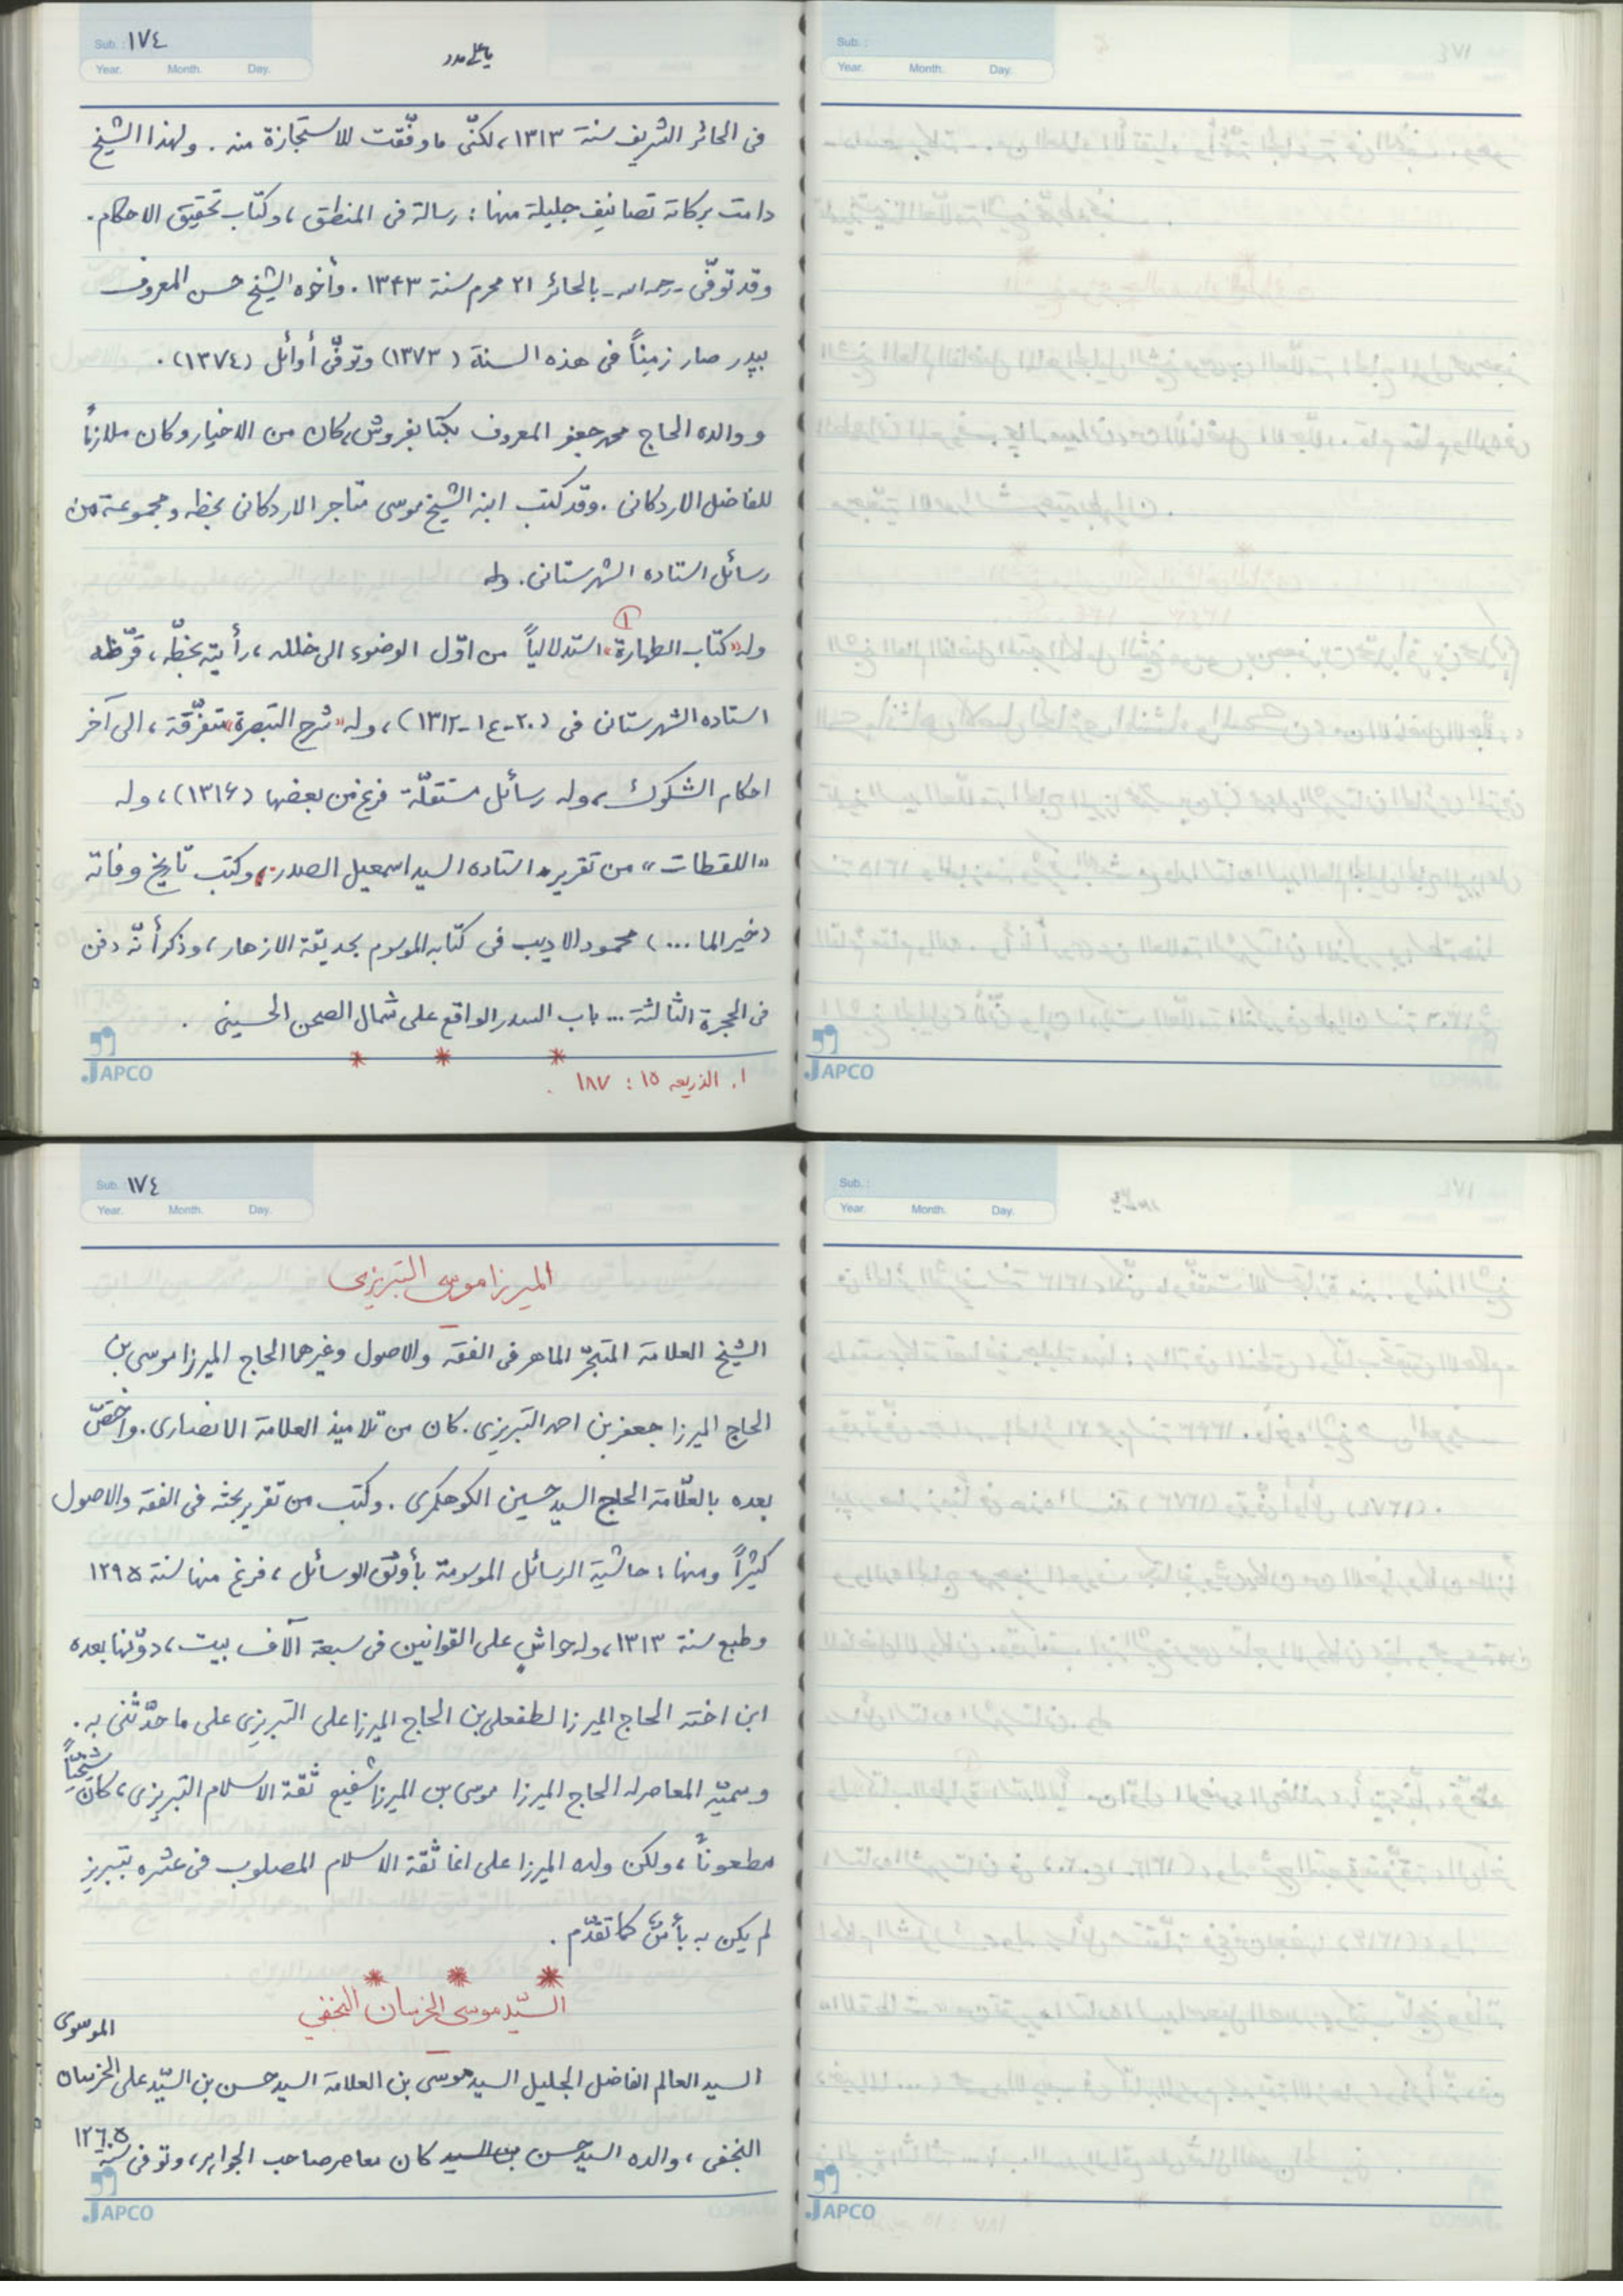 Sub.: ١٧٤
Year. Month. Day.
یا علی مدد
Sub.:
Year. Month. Day.
فی الحائر الشریف سنة ١٣١٣، لکنّی ما وفّقت للاستجازة منه. ولهذا الشیخ
دامت برکاته تصانیف جلیلة منها: رسالة فی المنطق، وکتاب تحقیق الاحکام.
وقد توفّی - رحمه الله - بالحائر ٢١ محرم سنة ١٣٤٣. وأخوه الشیخ حسن المعروف
صار زمِناً فی هذه السنة (١٣٧٣) وتوفّی أوائل (١٣٧٤).
و والده الحاج محمد جعفر المعروف بکتابفروش، کان من الاخیار وکان ملازماً
للفاضل الاردکانی. وقد کتب ابنه الشیخ موسی متاجر الاردکانی بخطه ومجموعة من
رسائل استاده الشهرستانی. وله
وله «کتاب الطهارة» (١) استدلالیاً من اوّل الوضوء الی خلله، رأیته بخطّه، قرّظه
استاده الشهرستانی فی (٢٠-ع١-١٣١٢)، وله «شرح التبصرة» متفرّقة، الی آخر
احکام الشکوک، وله رسائل مستقلّة فرغ من بعضها (١٣١۶)، وله
«اللقطات» من تقریر استاده السید اسمعیل الصدر، وکتب تاریخ وفاته
(خیر الما ...) محمود الادیب فی کتابه الموسوم بحدیقة الازهار، وذکر أنّه دفن
فی الحجرة الثالثة ... باب السدر الواقع علی شمال الصحن الحسینی.
* * *
١. الذریعه ١٥: ١٨٧.
JAPCO
JAPCO
Sub.: ١٧٤
Year. Month. Day.
Sub.:
Year. Month. Day.
المیرزا موسی التبریزی
الشیخ العلامة المتبحّر الماهر فی الفقه والاصول وغیرهما الحاج المیرزا موسی بن
الحاج المیرزا جعفر بن احمد التبریزی. کان من تلامیذ العلامة الانصاری. واختصّ
بعده بالعلّامة الحاج السید حسین الکوهکمری. وکتب من تقریر بحثه فی الفقه والاصول
کثیراً ومنها: حاشیة الرسائل الموسومة بأوثق الوسائل، فرغ منها سنة ١٢٩٥
وطبع سنة ١٣١٣، وله حواشٍ علی القوانین فی سبعة آلاف بیت، دوّنها بعده
ابن اخته الحاج المیرزا لطفعلی بن الحاج المیرزا علی التبریزی علی ما حدّثنی به.
وسمیّه المعاصر له الحاج المیرزا موسی بن المیرزا شفیع ثقة الاسلام التبریزی، کان شیخیّاً
مطعوناً، ولکن ولده المیرزا علی اغا ثقة الاسلام المصلوب فی عشره بتبریز
لم یکن به بأس، کما تقدّم.
* * *
السیّد موسی الخرسان النجفی
السید العالم الفاضل الجلیل السید موسی بن العلامة السید حسن بن السیّد علی الخرسان الموسوی
النجفی، والده السید حسن بن السید کان معاصر صاحب الجواهر، وتوفی سنة ١٢٦٥
JAPCO
JAPCO